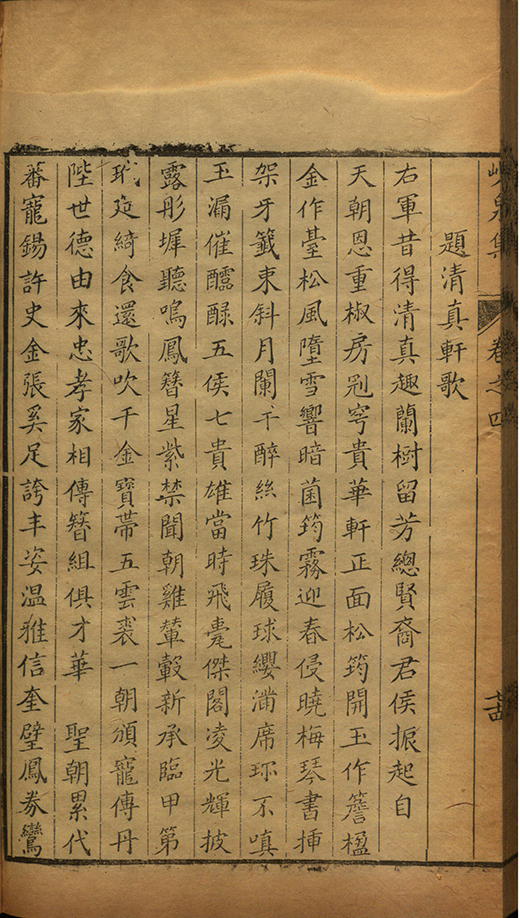 峴泉集 卷之四 十四
題清真軒歌
右軍昔得清真趣蘭樹留芳總賢裔君侯振起自
天朝恩重椒房冠穹貴華軒正面松筠開玉作簷楹
金作臺松風墮雪響暗菌筠霧迎春侵曉梅琴書插
架牙籤束斜月闌干醉絲竹珠履球纓滿席珎不嗔
玉漏催醽醁五侯七貴雄當時飛甍傑閣凌光輝披
露彤墀聽鳴鳳簪星紫禁聞朝雞輦轂新承臨甲第
玳筵綺食還歌吹千金寶帶五雲裘一朝頒寵傳丹
陛世德由來忠孝家相傳簪組俱才華 聖朝累代
蕃寵錫許史金張奚足誇丰姿溫雅信奎璧鳳券鸞